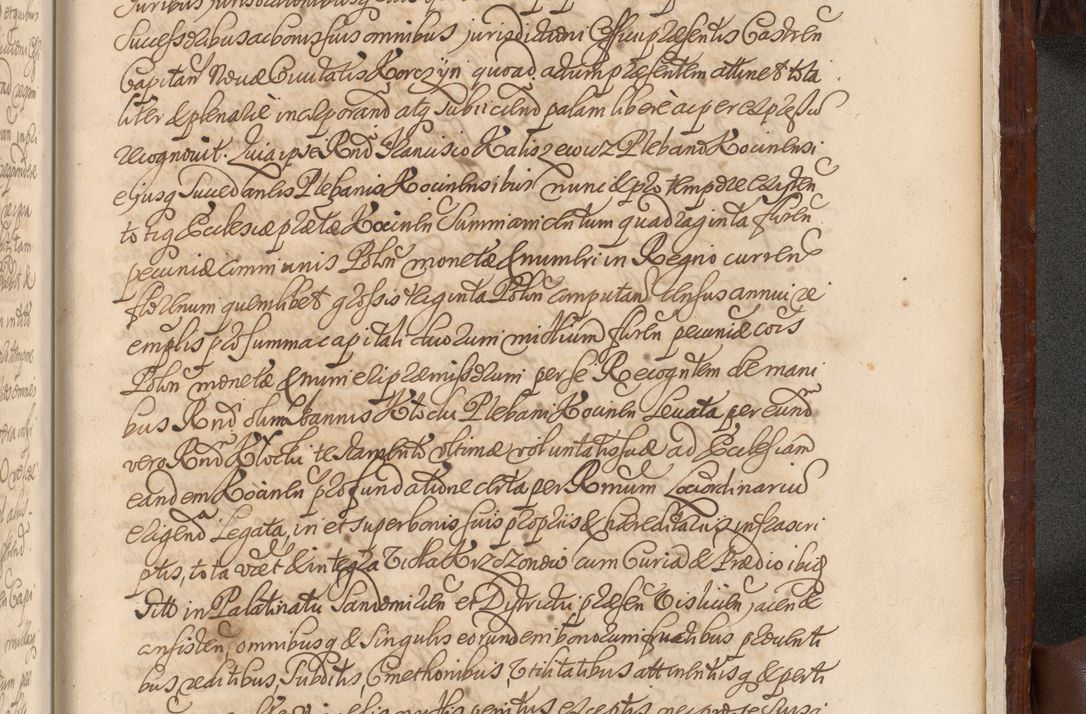 Successoribus ac bonis suis omnibus jurisdictioni Officii præsentis Castren
Capitan Novæ Civitatis Korczyn quoad actum præsentem attinet tota
liter & plenarie incorporand atq subiiciend palam libere ac per expressu
recognovit. Quia ipse Rndo Francisco Kaliszewicz Pleband Kocinensi
ejusq Succedaneis Plebanis Kocinensibus nunc & pro tempore existen
totiq Ecclesiæ prætæ Kocinen Summam centum quadraginta floren
pecuniæ communis Polon monetæ & numeri in Regno curren
florenum quemlibet grossis triginta Polon computan Census annui re
emptis pro summa capitali duorum millium floren pecuniæ cois
Polon monetæ & numeri præmissorum per se Recognten de mani
bus Rnd olim Joannis Klocki Plebani Kocinen Levata per eund
vero Rnd Klocki testamento ultimæ voluntatis suæ ad Ecclesiam
eandem Kocinen pro fundatione certa per Rmum Loci ordinariu
eligend Legata, in et super bonis suis propriis & hæreditariis infrascri
ptis, tota videt & integra Villa Krzczonow cum Curia & Prædio ibiq
Sitto in Palatinatu Sandomirien et Districtu præsen Vislicien jacen &
consisten, omnibusq & Singulis eorundem bonorum fructibus proventi
bus reditibus, Subditis, Cmethonibus, Utilitatibus attinentiisq & perti